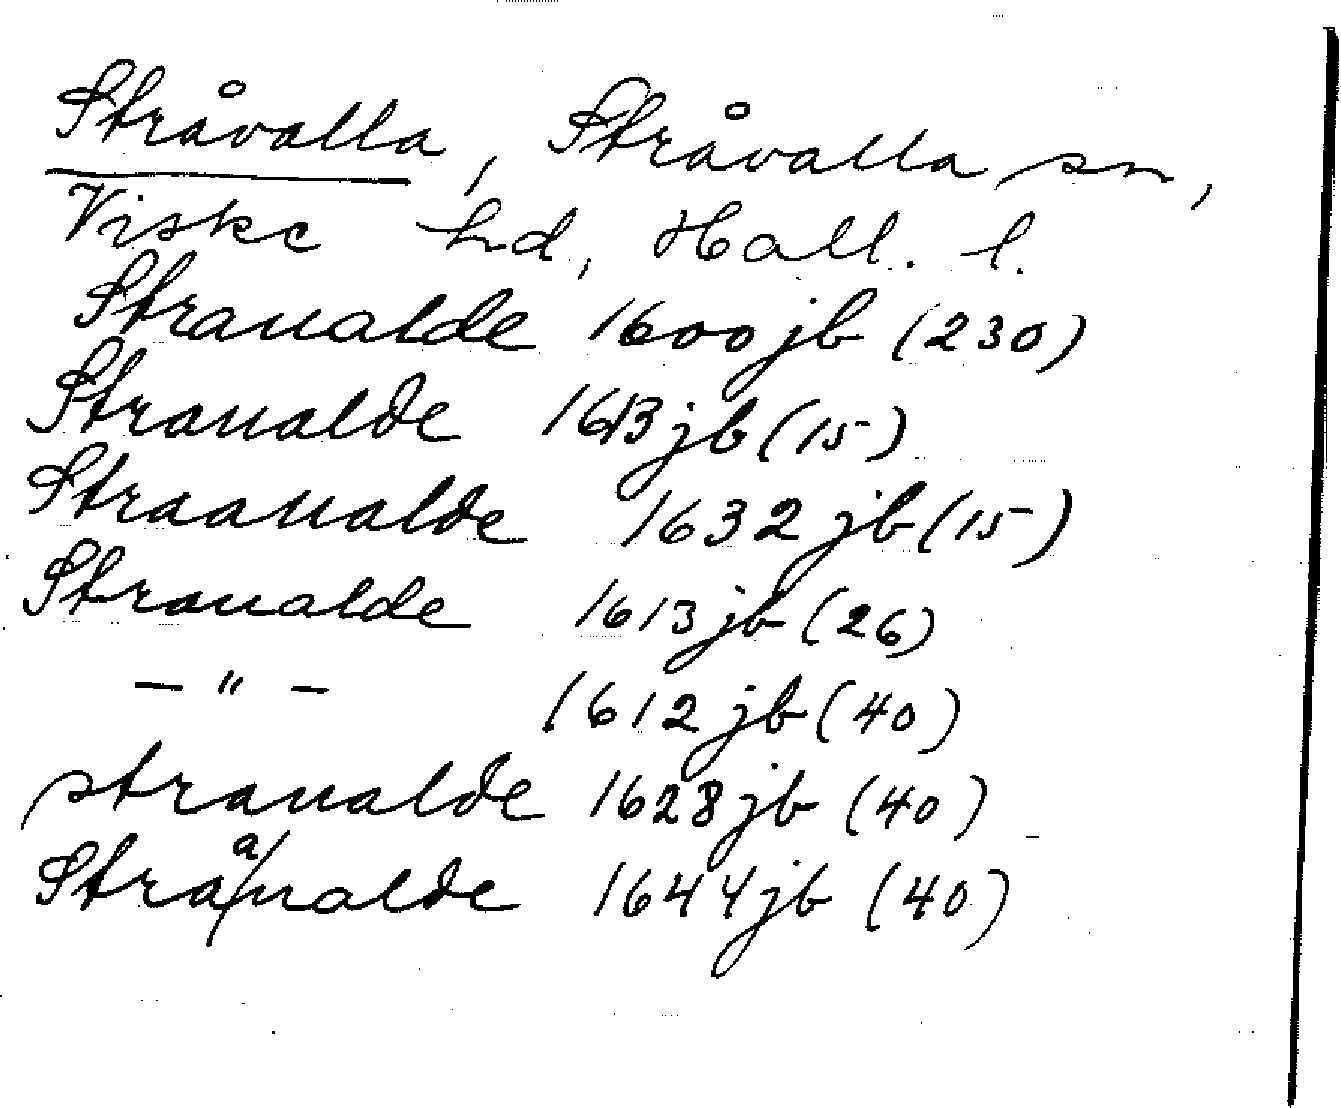 Stråvalla, Stråvalla sn,
Viske hd, Hall. l.
Straualde 1600 jb (230)
Straualde 1613 jb (15)
Straaualde 1632 jb (15)
Straualde 1613 jb (26)
— " — 1612 jb (40)
straualde 1628 jb (40)
Straaualde 1644 jb (40)